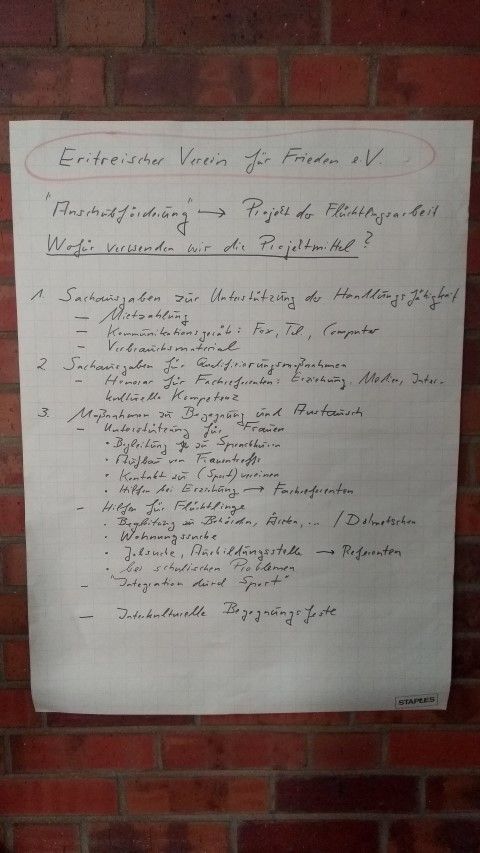 Eritreischer Verein für Frieden e.V.
"Anschubförderung" → Projekt der Flüchtlingsarbeit
Wofür verwenden wir die Projektmittel?
1. Sachausgaben zur Unterstützung der Handlungsfähigkeit
– Mietzahlung
– Kommunikationsgerät: Fax, Tel, Computer
– Verbrauchsmaterial
2. Sachausgaben für Qualifizierungsmaßnahmen
– Honorar für Fachreferenten: Erziehung, Inter-
kulturelle Kompetenz
3. Maßnahmen zu Begegnung und Austausch
– Unterstützung für Frauen
• Begleitung zu Sprachkursen
• Aufbau von Frauentreffs
• Kontakt zu (Sport)vereinen
• Hilfen bei Erziehung → Fachreferenten
– Hilfen für Flüchtlinge
• Begleitung zu Behörden, Ärzten, ... / Dolmetschen
• Wohnungssuche
• Jobsuche, Ausbildungsstelle → Referenten
• bei schulischen Problemen
– "Integration durch Sport"
– Interkulturelle Begegnungsfeste
STAPLES